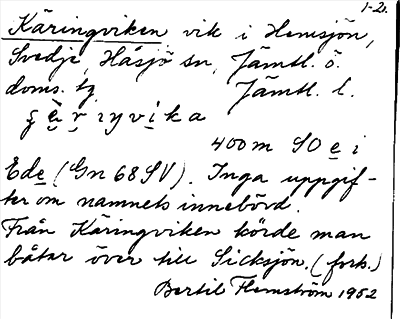 1-2).
Käringviken vik i Hemsjön,
Svedje, Håsjö sn, Jämtl. ö.
doms. tg Jämtl. l.
ʂæ̀rɪŋvika
400 m SO e i
Ede (Gn 68 SV). Inga uppgif-
ter om namnets innebörd.
Från Käringviken körde man
båtar över till Sicksjön. (forts.)
Bertil Flemström 1952